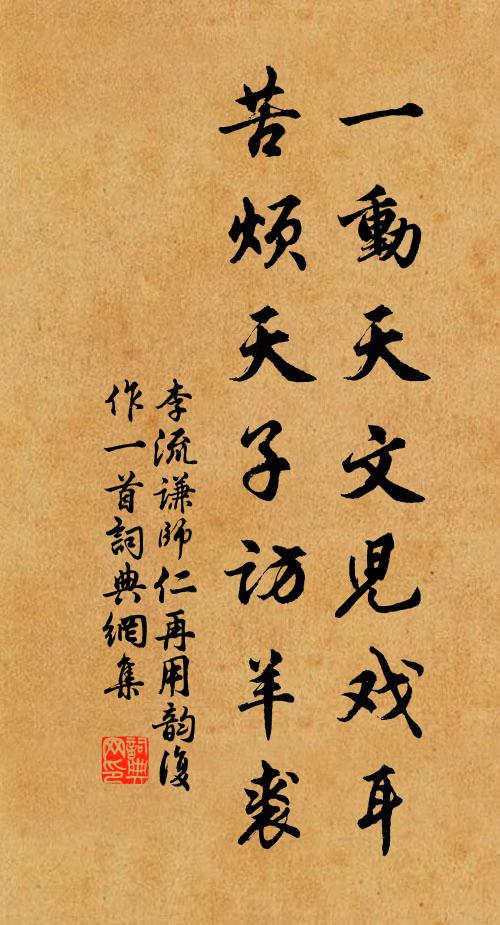 一動天文児戏耳
苦煩天子訪羊裘
李流謙師仁再用韵復
作一首詞典網集
詞典网印